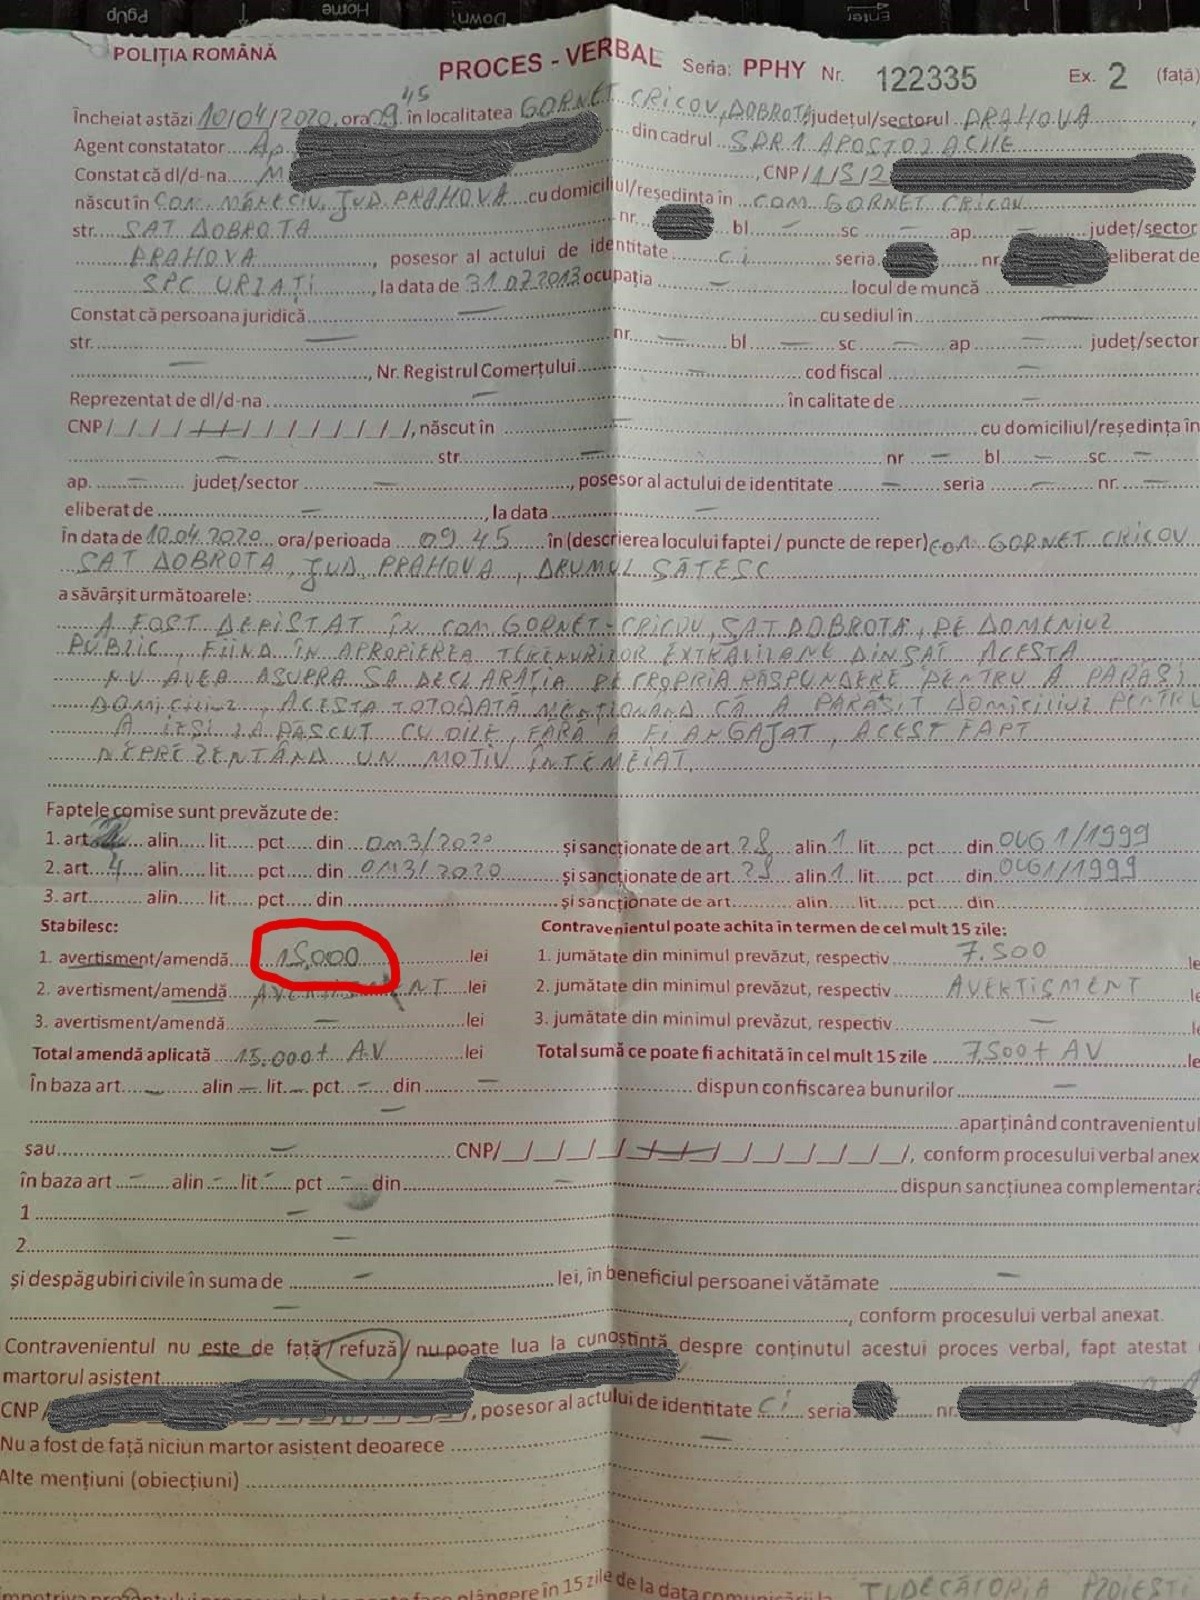 PgUp Home Down Enter
POLIȚIA ROMÂNĂ
PROCES - VERBAL Seria: PPHY Nr. 122335 Ex. 2 (față)
Încheiat astăzi 10/04/2020, ora 09 45 în localitatea GORNET CRICOV, DOBROTA județul/sectorul PRAHOVA,
Agent constatator Ap din cadrul SPR 1 APOSTOLACHE
Constat că dl/d-na M , CNP/1/5/2
născut în COM. MĂNECIU, JUD. PRAHOVA cu domiciliul/reședința în COM. GORNET CRICOV
str. SAT DOBROTA nr. bl — sc — ap — județ/sector
PRAHOVA, posesor al actului de identitate C.i seria nr. eliberat de
SPC URLAȚI, la data de 31.07.2013 ocupația — locul de muncă —
Constat că persoana juridică — cu sediul în —
str. — nr. — bl — sc — ap — județ/sector
—, Nr. Registrul Comerțului — cod fiscal —
Reprezentat de dl/d-na — în calitate de —
CNP/_/_/_/_/_/_/_/_/_/_/_/_/_/, născut în — cu domiciliul/reședința în
— str. — nr — bl. — sc —
ap. — județ/sector —, posesor al actului de identitate — seria — nr. —
eliberat de —, la data —
În data de 10.04.2020 ora/perioada 09.45 în (descrierea locului faptei / puncte de reper) COM. GORNET CRICOV
SAT DOBROTA, JUD. PRAHOVA, DRUMUL SĂTESC
a săvârșit următoarele:
A FOST DEPISTAT ÎN COM GORNET-CRICOV, SAT DOBROTA, PE DOMENIUL
PUBLIC, FIIND ÎN APROPIEREA TERENURILOR EXTRAVILANE DIN SAT ACESTA
NU AVEA ASUPRA SA DECLARAȚIA PE PROPRIA RĂSPUNDERE PENTRU A PĂRĂSI
DOMICILIUL, ACESTA TOTODATĂ MENȚIONÂND CĂ A PĂRĂSIT DOMICILIUL PENTRU
A IEȘI LA PĂSCUT CU OILE, FĂRĂ A FI ANGAJAT, ACEST FAPT
NEPREZENTÂND UN MOTIV ÎNTEMEIAT.
Faptele comise sunt prevăzute de:
1. art. alin. lit. pct. din OM3/2020 și sancționate de art. 28 alin 1 lit. pct. din OUG 1/1999
2. art. 4 alin. lit. pct. din OM3/2020 și sancționate de art. 28 alin 1 lit. pct. din OUG 1/1999
3. art. alin. lit. pct. din și sancționate de art. alin lit pct. din
Stabilesc: Contravenientul poate achita în termen de cel mult 15 zile:
1. avertisment/amendă 15.000 lei 1. jumătate din minimul prevăzut, respectiv 7.500 le
2. avertisment/amendă AVERTISMENT lei 2. jumătate din minimul prevăzut, respectiv AVERTISMENT le
3. avertisment/amendă — lei 3. jumătate din minimul prevăzut, respectiv — le
Total amendă aplicată 15.000 + AV lei Total sumă ce poate fi achitată în cel mult 15 zile 7500 + AV le
În baza art. — alin — lit. — pct. — din — dispun confiscarea bunurilor —
— aparținând contravenientul
sau — CNP/_/_/_/_/_/_/_/_/_/_/_/_/_/, conform procesului verbal anex
în baza art — alin — lit — pct — din — dispun sancțiunea complementară
1 —
2. —
și despăgubiri civile în suma de — lei, în beneficiul persoanei vătămate —
—, conform procesului verbal anexat.
Contravenientul nu este de față / refuză / nu poate lua la cunoștință despre conținutul acestui proces verbal, fapt atestat
martorul asistent
CNP/ , posesor al actului de identitate Ci seria nr.
Nu a fost de față niciun martor asistent deoarece —
Alte mențiuni (obiecțiuni)
plângere în 15 zile de la data comunicării la JUDECĂTORIA PLOIEȘTI